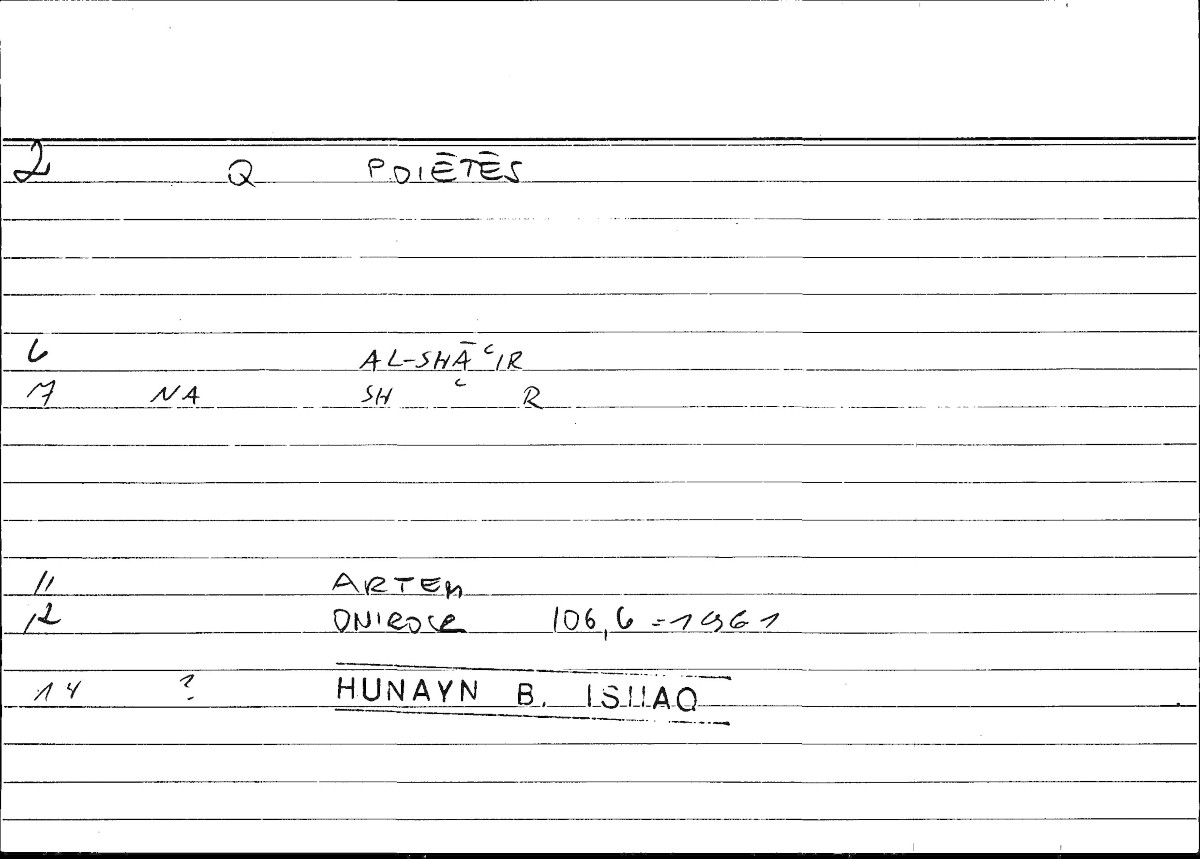 2 Q POIĒTĒS
6 AL-SHĀʿIR
7 NA SH ʿ R
11 ARTEM
12 ONIROCR 106,6 = 196 1
14 ? HUNAYN B. ISHAQ